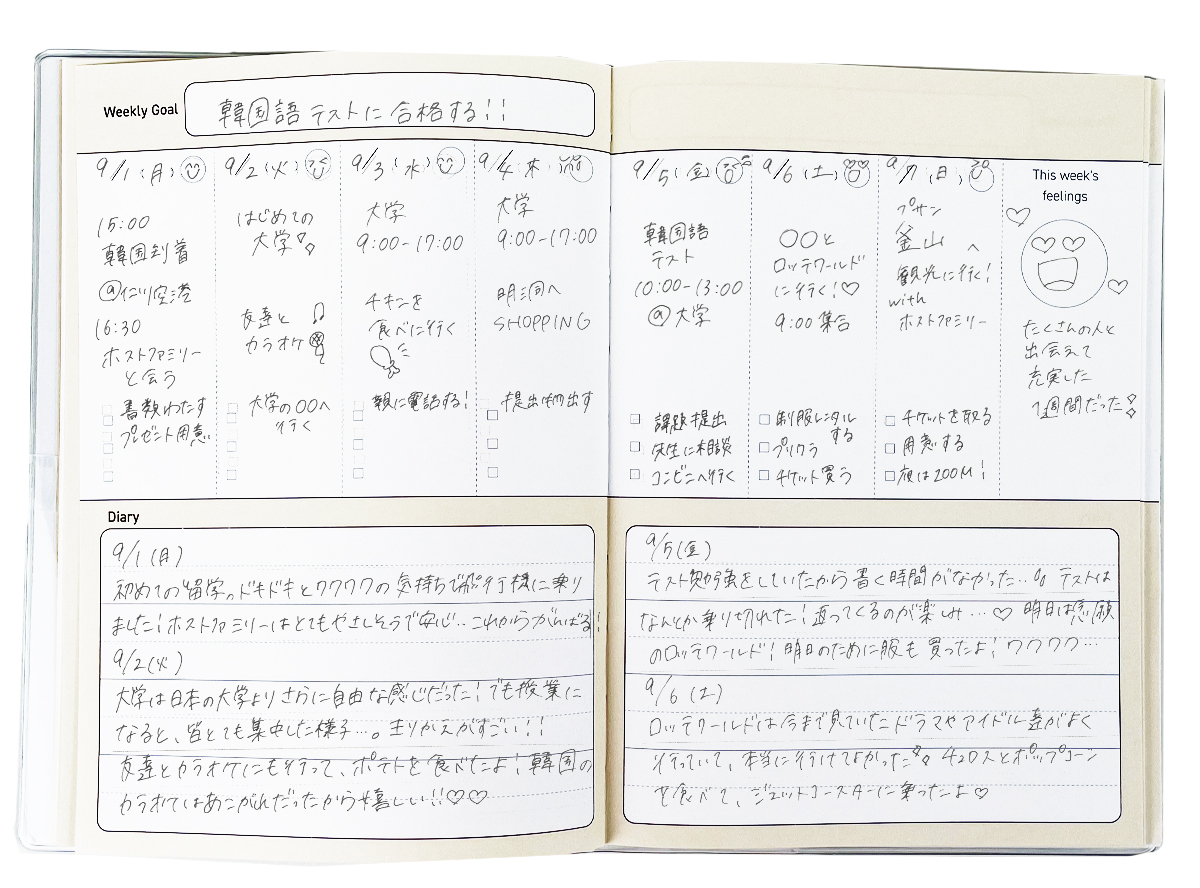 Weekly Goal
韓国語テストに合格する!!
9/1(月)
15:00
韓国到着
@仁川空港
16:30
ホストファミリー
と会う
書類わたす
プレゼント用意
9/2(火)
はじめての
大学
友達と
カラオケ
大学の〇〇へ
行く
9/3(水)
大学
9:00-17:00
チキンを
食べに行く
親に電話する!
9/4(木)
大学
9:00-17:00
明洞へ
SHOPPING
提出物出す
9/5(金)
韓国語
テスト
10:00-13:00
@大学
課題提出
先生に相談
コンビニへ行く
9/6(土)
〇〇と
ロッテワールド
に行く!♡
9:00集合
制服レンタル
する
プリクラ
チケット買う
9/7(日)
プサン
釜山へ
観光に行く!
with
ホストファミリー
チケットを取る
用意する
夜は200M!
This week's
feelings
たくさんの人と
出会えて
充実した
1週間だった
Diary
9/1(月)
初めての留学っドキドキとワクワクの気持ちで飛行機に乗り
ました!ホストファミリーはとてもやさしそうで安心…これからがんばる!
9/2(火)
大学は日本の大学よりさらに自由な感じだった!でも授業に
なると、皆とても集中した様子…。切りかえがすごい!!
友達とカラオケにも行って、ポテトを食べたよ!韓国の
カラオケはあこがれだったから嬉しい!!♡♡
9/5(金)
テスト勉強をしていたから書く時間がなかった…。テストは
なんとか乗り切れた!返ってくるのが楽しみ…♡ 明日は念願
のロッテワールド!明日のために服も買ったよ!ワクワク…
9/6(土)
ロッテワールドは今まで見ていたドラマやアイドル達がよく
行っていて、本当に行けてよかった チュロスとポップコーン
を食べて、ジェットコースターに乗ったよ♡